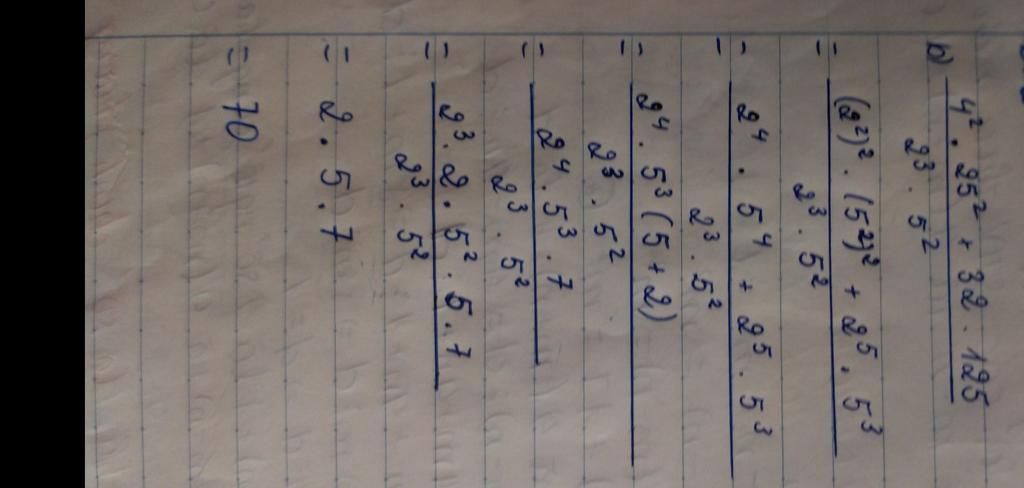 b) 4² . 25² + 32 . 125
2³ . 5²
= (2²)² . (5²)² + 2⁵ . 5³
2³ . 5²
= 2⁴ . 5⁴ + 2⁵ . 5³
2³ . 5²
= 2⁴ . 5³ (5 + 2)
2³ . 5²
= 2⁴ . 5³ . 7
2³ . 5²
= 2³ . 2 . 5² . 5 . 7
2³ . 5²
= 2 . 5 . 7
= 70